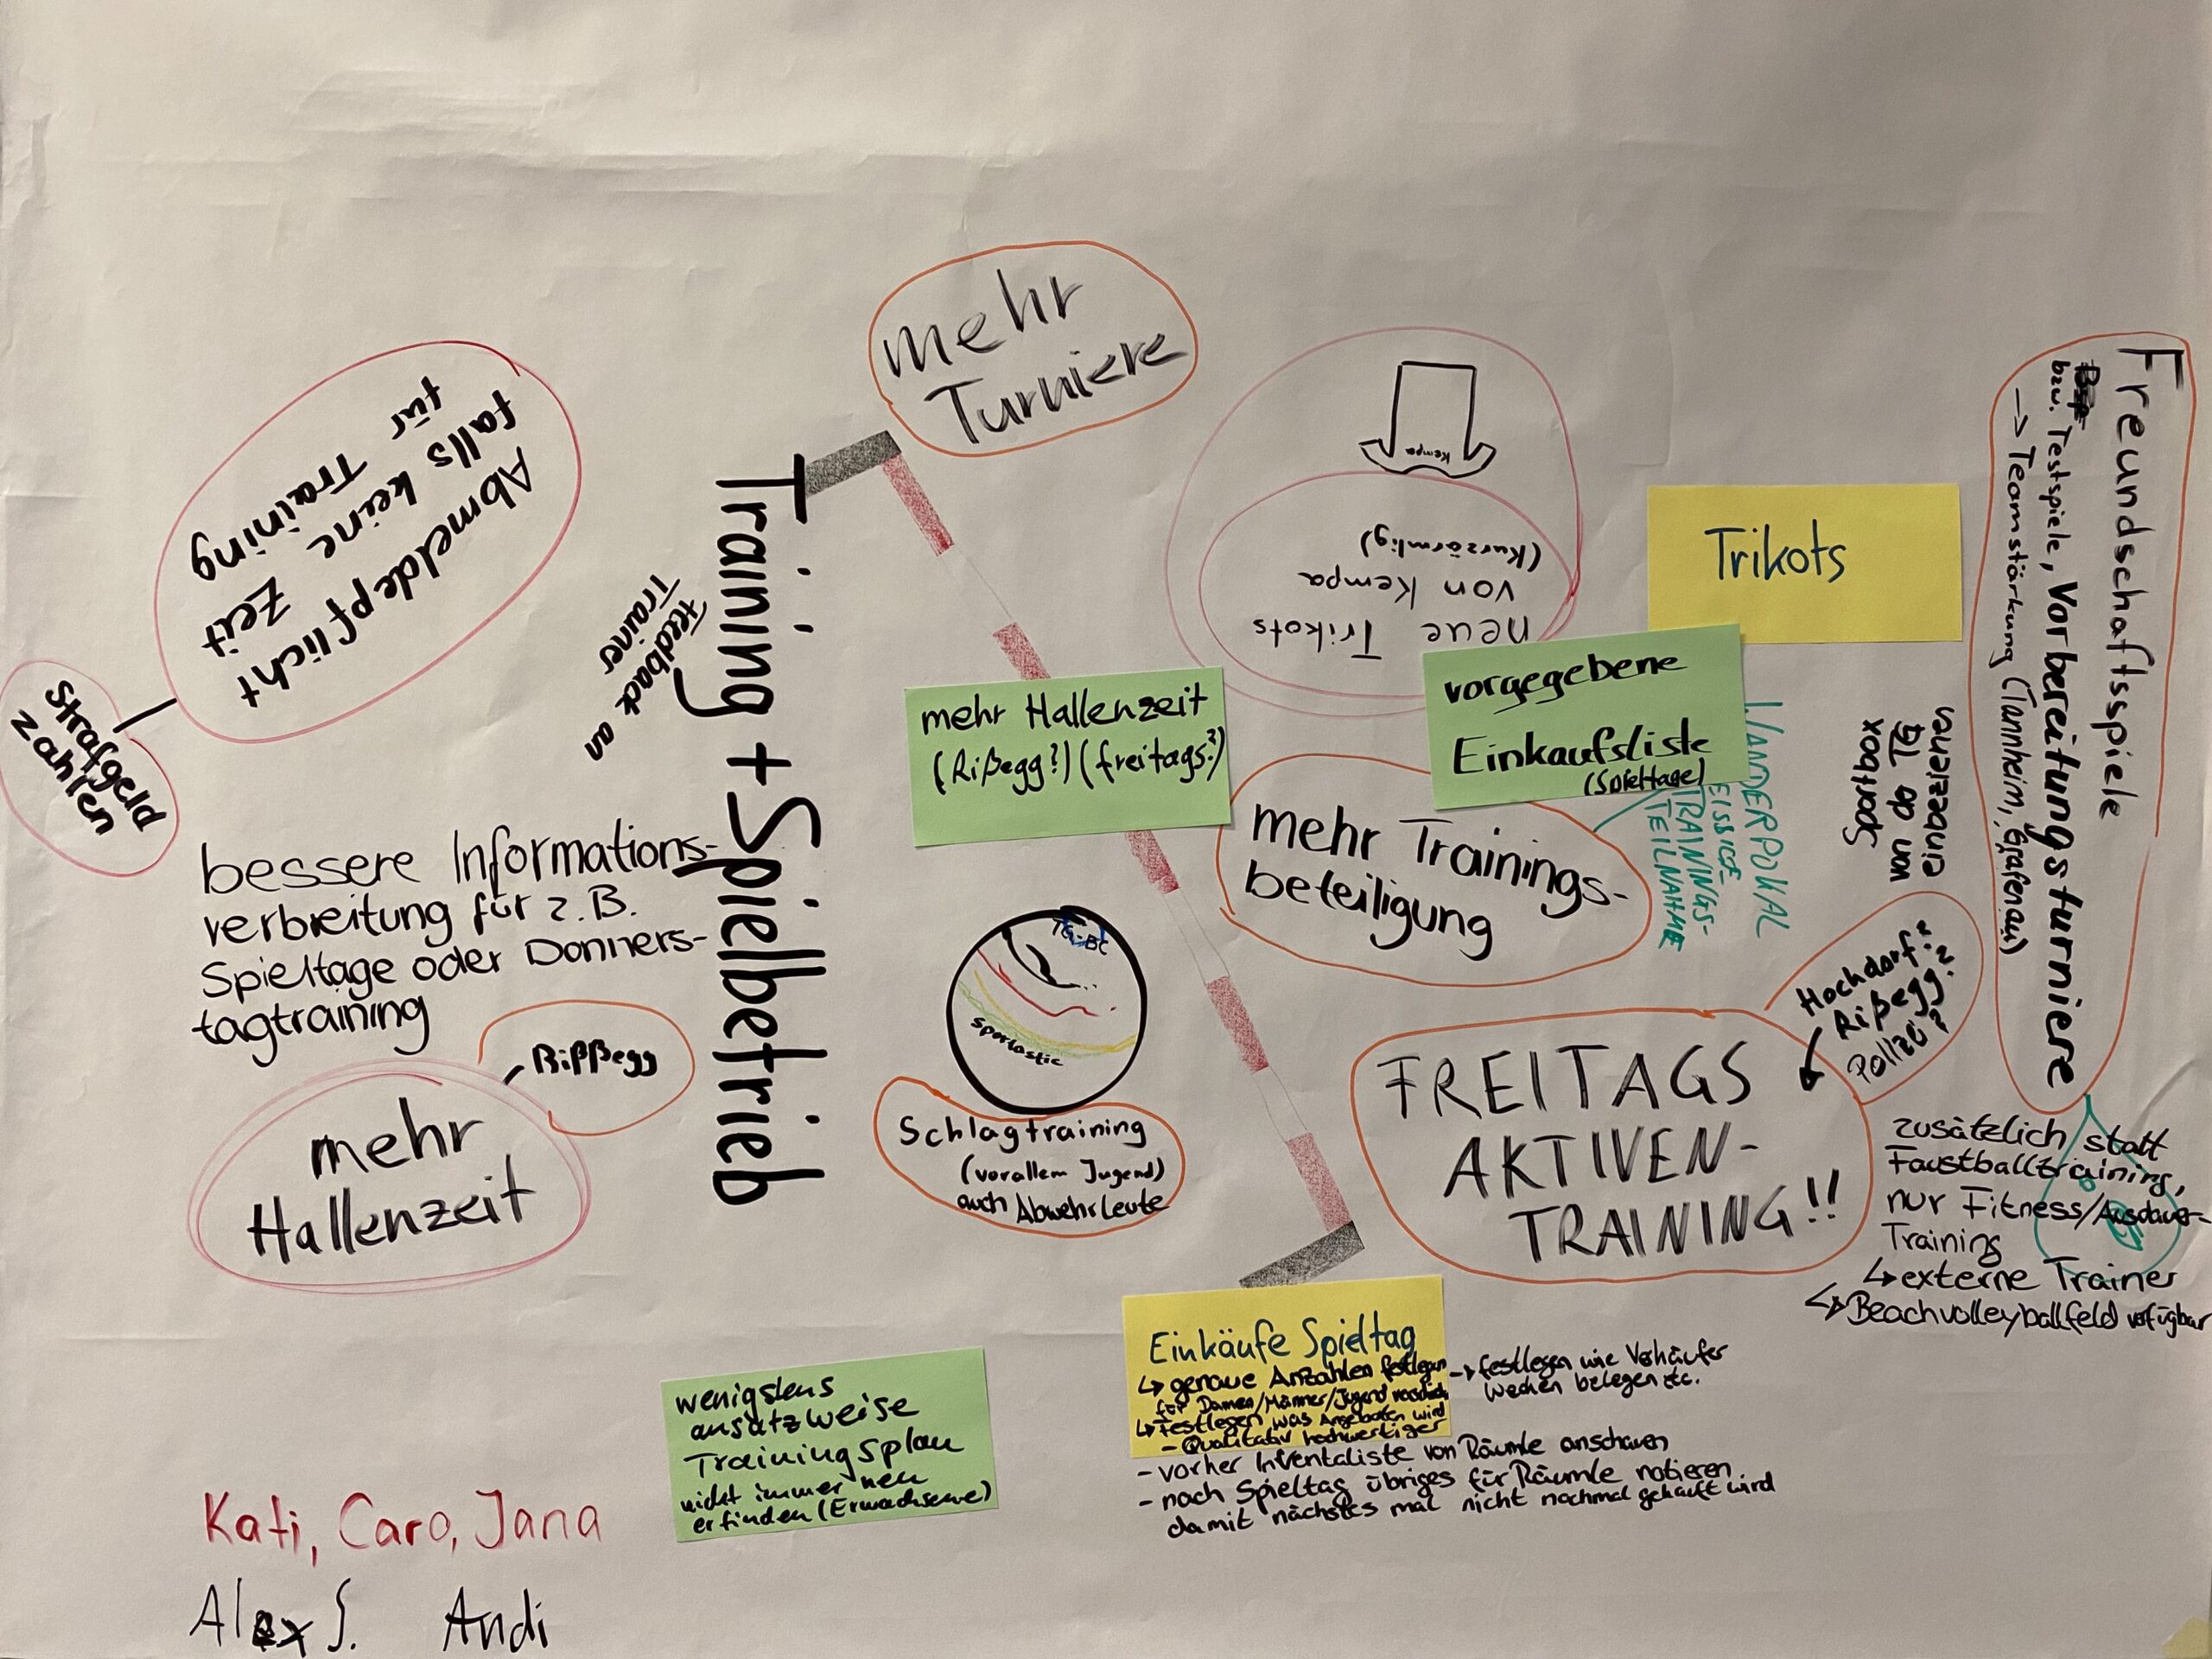 mehr
Turniere
Kempa
neue Trikots
von Kempa
(Kurzärmlig)
Trikots
Freundschaftsspiele
bzw. Testspiele, Vorbereitungsturniere
→ Teamstärkung (Tannheim, Grafenau)
Abmeldepflicht
falls keine Zeit
für Training
Strafgeld
zahlen
Feedback an
Trainer
Training + Spielbetrieb
mehr Hallenzeit
(Rißegg?) (freitags?)
vorgegebene
Einkaufsliste
(Spieltage)
WANDERPOKAL
TRAININGS-
TEILNAHME
Sportbox
von da TG
einbeziehen
mehr Trainings-
beteiligung
bessere Informations-
verbreitung für z.B.
Spieltage oder Donners-
tagtraining
Rißegg
mehr
Hallenzeit
TG-BC
sportastic
Schlagtraining
(vorallem Jugend)
auch Abwehrleute
Hochdorf?
Rißegg?
Pollzei?
FREITAGS
AKTIVEN-
TRAINING!!
zusätzlich statt
Faustballtraining,
nur Fitness/Ausdauer-
Training
↳ externe Trainer
↳ Beachvolleyballfeld verfügbar
Einkäufe Spieltag
↳ genaue Anzahlen festlegen → festlegen wie Verkäufer
für Damen/Männer/Jugend Wecken belegen etc.
↳ Festlegen was Angeboten wird
- Qualitativ hochwertiger
- vorher Inventaliste von Räumle anschauen
- nach Spieltag übriges für Räumle notieren
damit nächstes mal nicht nochmal gekauft wird
wenigstens
ansatzweise
Trainingsplan
nicht immer neu
erfinden (Erwachsene)
Kati, Caro, Jana
Alex S. Andi